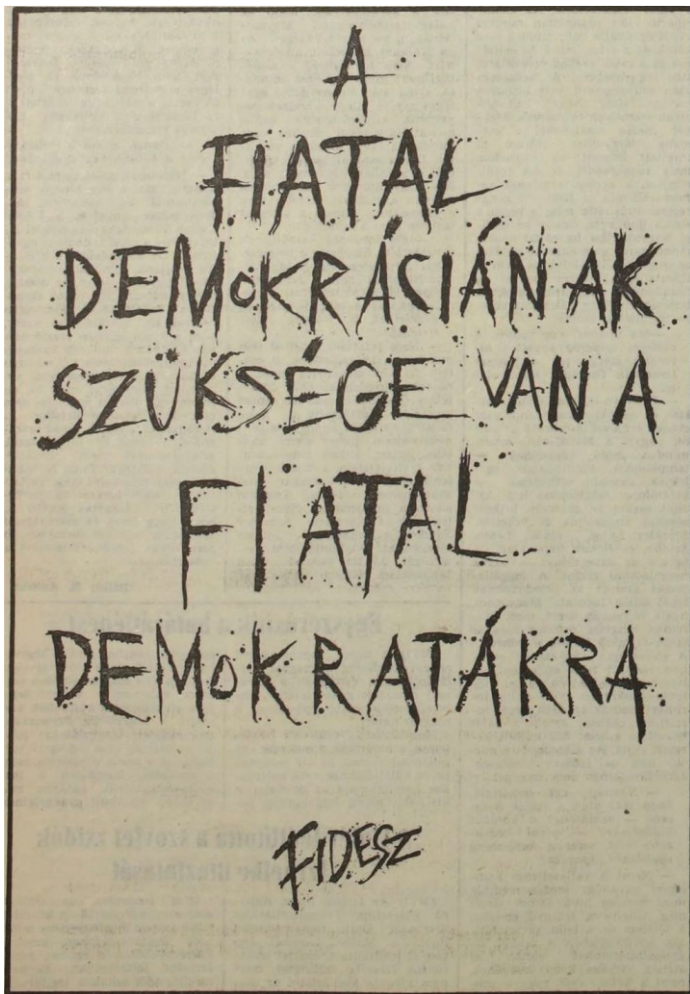 A
FIATAL
DEMOKRÁCIÁNAK
SZÜKSÉGE VAN A
FIATAL
DEMOKRATÁKRA
FIDESZ